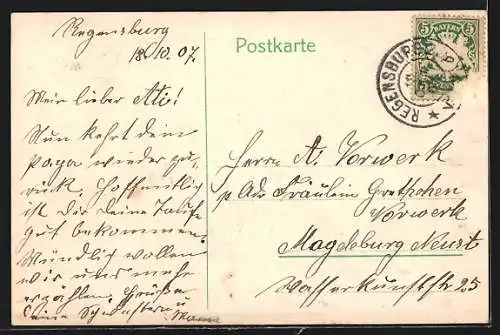 Regensburg
18.10.07.
Postkarte
5 BAYERN 5
REGENSBURG
Mein lieber Ati!
Nun kehrt dein
Papa wieder zu-
rück. Hoffentlich
ist dir deine Taufe
gut bekommen.
Mündlich wollen
wir uns mehr
erzählen. Grüße
deine Schwestern u
Mama
Herrn A. Vorwerk
p. Adr. Fräulein Grethchen
Vorwerk
Magdeburg Neust
Wasserkunststr 25